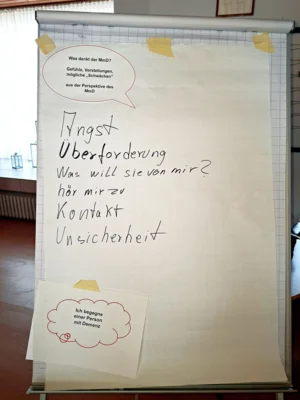 Was denkt der MmD?
Gefühle, Vorstellungen,
mögliche „Schwächen"
aus der Perspektive des
MmD
Angst
Überforderung
Was will sie von mir?
hör mir zu
Kontakt
Unsicherheit
Ich begegne
einer Person
mit Demenz